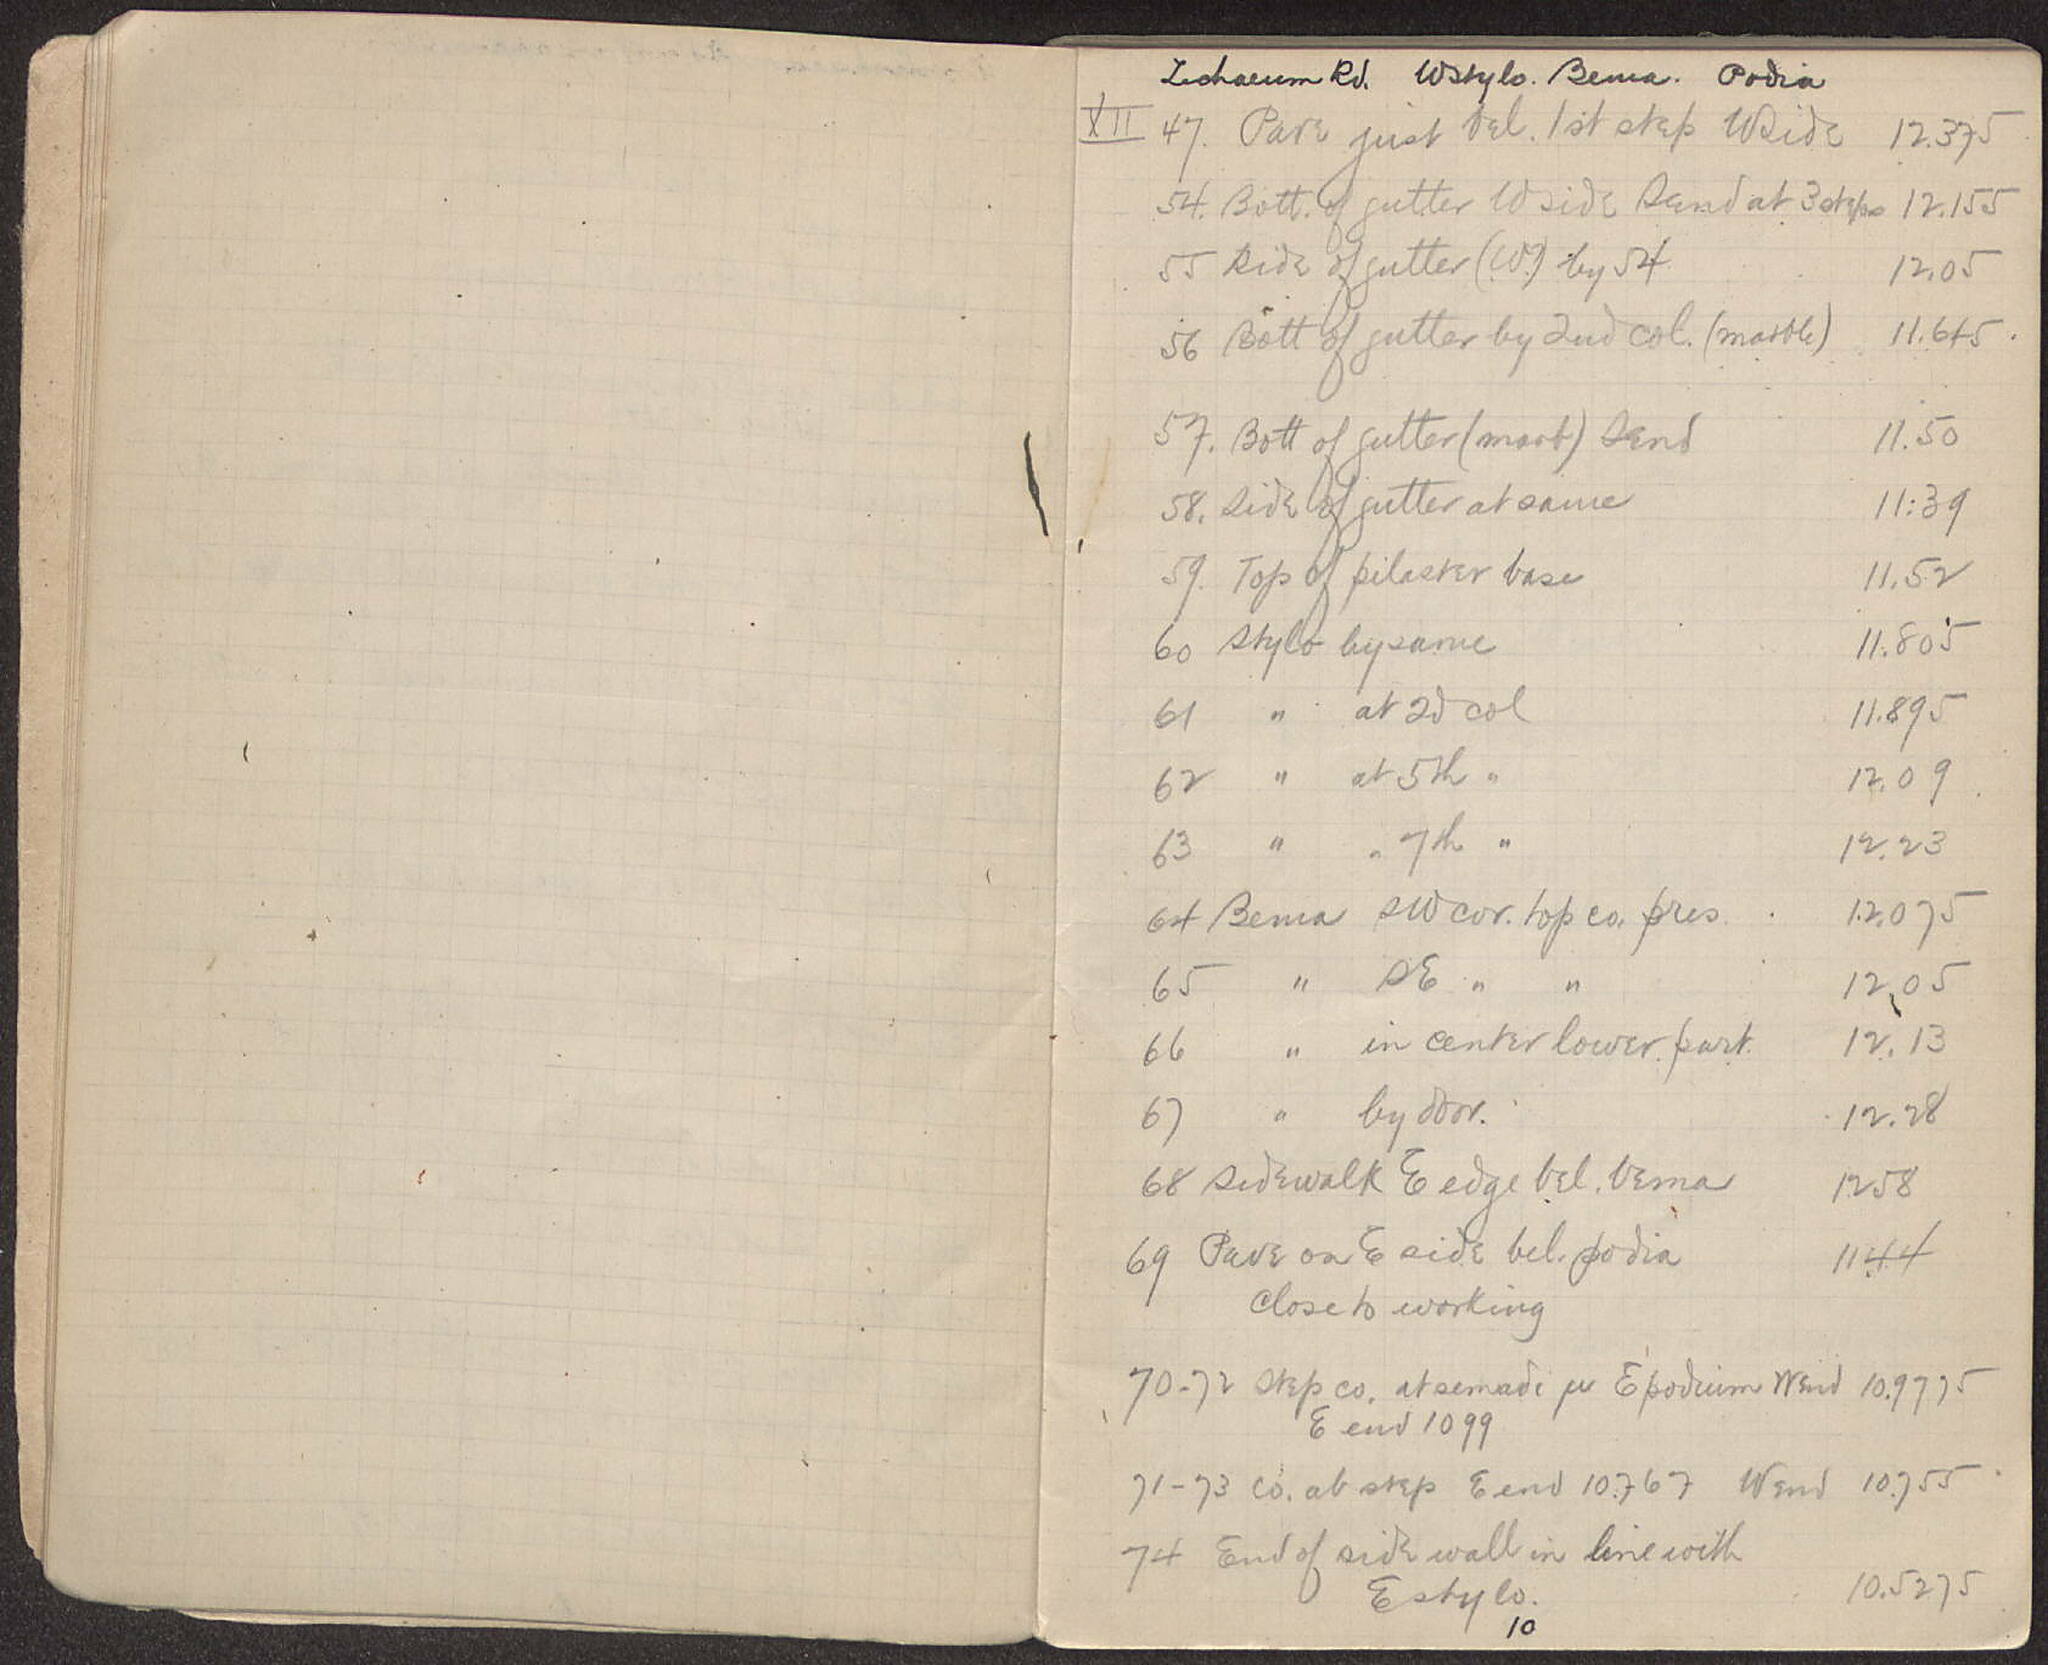 Lechaeum Rd. W Stylo. Bema. Podia
XII 47. Pave just bel. 1st step W side 12.375
54. Bott. of gutter W side S end at 3 steps 12.155
55 Side of gutter (W.) by 54 12.05
56 Bott of gutter by 2nd col. (marble) 11.645
57. Bott of gutter (marb) S end 11.50
58. Side of gutter at same 11.39
59. Top of pilaster base 11.52
60 Stylo by same 11.805
61 " at 2d col 11.895
62 " at 5th " 12.09
63 " " 7th " 12.23
64 Bema SW cor. top co. pres. 12.075
65 " SE " " 12.05
66 " in center lower part. 12.13
67 " by door. 12.28
68 Sidewalk E edge bel. bema 1258
69 Pave on E side bel. podia 1144
close to working
70-72 Step co. at E podium W end 10.9775
E end 1099
71-73 co. ab step E end 10.767 W end 10.755
74 End of side wall in line with
E stylo. 10.5275
10